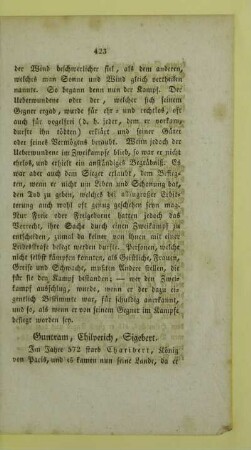 423
der Wind beschwerlicher fiel, als dem anderen,
welches man Sonne und Wind gleich vertheilen
nannte. So begann denn nun der Kampf. Der
Ueberwundene oder der, welcher sich seinem
Gegner ergab, wurde für ehr- und rechtlos, oft
auch für vogelfrei (d. h. jeder, dem er vorkam,
durfte ihn tödten) erklärt und seiner Güter
oder seines Vermögens beraubt. Wenn jedoch der
Ueberwundene im Zweikampfe blieb, so war er nicht
ehrlos, und erhielt ein anständiges Begräbniß. Es
war aber auch dem Sieger erlaubt, dem Besieg-
ten, wenn er nicht um Leben und Schonung bat,
den Tod zu geben, welches bei allzugroßer Erbit-
terung auch wohl oft genug geschehen seyn mag.
Nur Freie oder Freigeborne hatten jedoch das
Vorrecht, ihre Sache durch einen Zweikampf zu
entscheiden, zumal da keiner von ihnen mit einer
Leibesstrafe belegt werden durfte. Personen, welche
nicht selbst kämpfen konnten, als Geistliche, Frauen,
Greise und Schwache, mußten Andere stellen, die
für sie den Kampf bestanden; — wo der Zwei-
kampf ausschlug, wurde, wenn er der dazu ei-
gentlich Bestimmte war, für schuldig anerkannt,
und so, als wenn er von seinem Gegner im Kampfe
besiegt worden sey.
Guntram, Chilperich, Sigebert.
Im Jahre 572 starb Charibert, König
von Paris, und es kamen nun seine Lande, da er